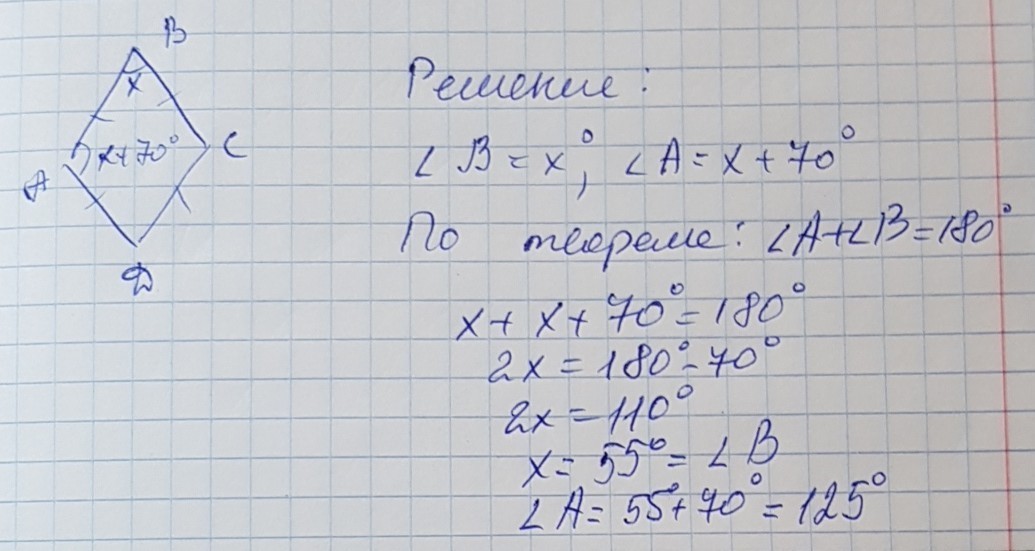 B
x
x+70°
C
A
D
Решение:
∠B = x°, ∠A = x + 70°
По теореме: ∠A+∠B=180°
x + x + 70° = 180°
2x = 180° - 70°
2x = 110°
x = 55° = ∠B
∠A = 55°+ 70° = 125°